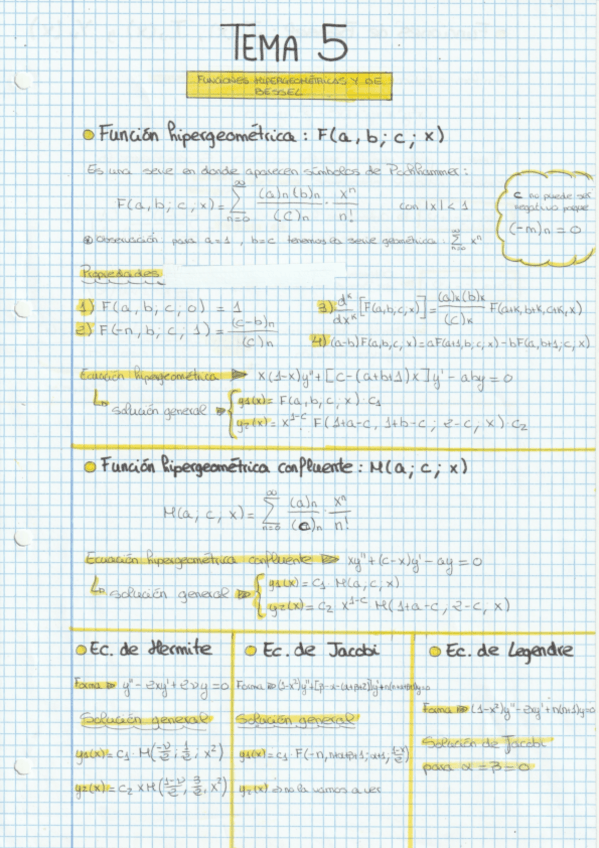 TEMA 5
FUNCIONES HIPERGEOMÉTRICAS Y DE
BESSEL
Función hipergeométrica : F(a, b; c; x)
Es una serie en donde aparecen símbolos de Pochhammer:
F(a, b; c, x) = ∑_{n=0}^{∞} (a)n (b)n / (c)n · x^n / n!   con |x| < 1
c no puede ser
negativo porque
(-m)n = 0
Observación para a=1, b=c tenemos la serie geométrica ∑_{n=0}^{∞} x^n
Propiedades
1) F(a, b, c, 0) = 1
2) F(-n, b; c, 1) = (c-b)n / (c)n
3) d^k/dx^k [F(a,b,c,x)] = (a)k (b)k / (c)k F(a+k, b+k, c+k, x)
4) (a-b)F(a,b,c,x) = aF(a+1,b,c,x) - bF(a,b+1,c,x)
Ecuación hipergeométrica ► x(1-x)y'' + [c-(a+b+1)x]y' - aby = 0
Solución general
y1(x) = F(a,b,c,x)·c1
y2(x) = x^{1-c} F(1+a-c, 1+b-c; 2-c, x)·c2
Función hipergeométrica confluente : M(a; c; x)
M(a, c, x) = ∑_{n=0}^{∞} (a)n / (c)n · x^n / n!
Ecuación hipergeométrica confluente ► xy'' + (c-x)y' - ay = 0
Solución general
y1(x) = c1 · M(a, c, x)
y2(x) = c2 x^{1-c} M(1+a-c, 2-c, x)
Ec. de Hermite
Forma ► y'' - 2xy' + 2νy = 0
Solución general
y1(x) = c1 · M(-ν/2; 1/2; x²)
y2(x) = c2 x M(1-ν/2, 3/2, x²)
Ec. de Jacobi
Forma ► (1-x²)y'' + [β-α-(α+β+2)x]y' + n(n+α+β+1)y=0
Solución general
y1(x) = c1 · F(-n, n+α+β+1; α+1, 1-x/2)
y2(x) no la vamos a ver
Ec. de Legendre
Forma ► (1-x²)y'' - 2xy' + n(n+1)y=0
Solución de Jacobi
para α = β = 0